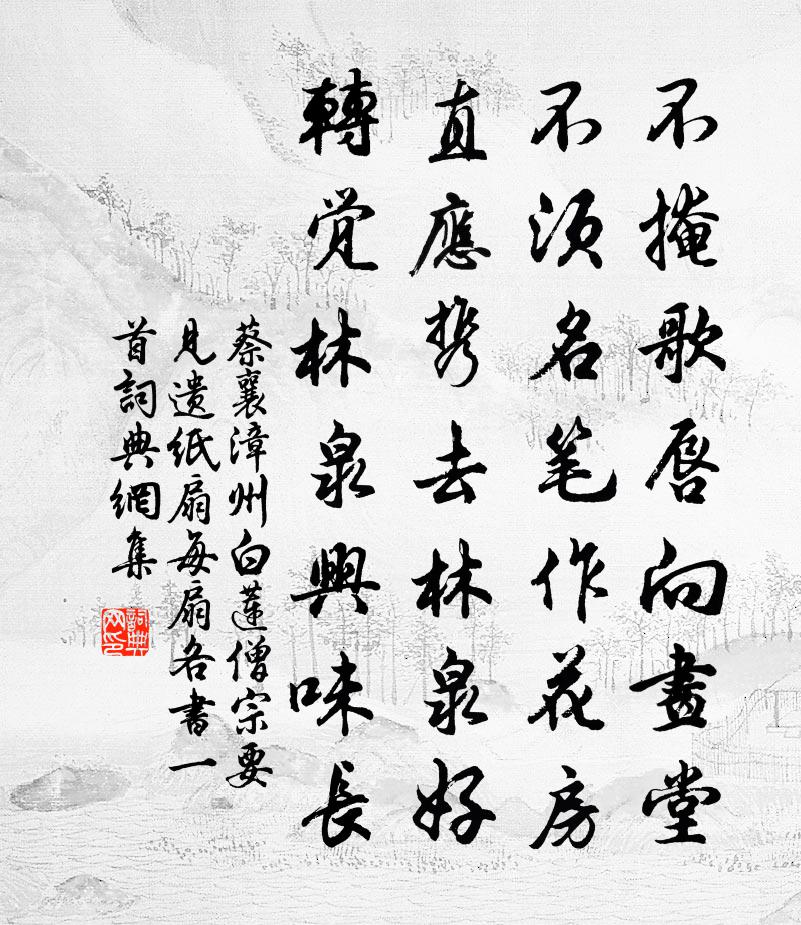 不掩歌唇向畫堂
不須名笔作花房
直應携去林泉好
轉覺林泉興味長
蔡襄漳州白蓮僧宗要
見遗紙扇每扇各書一
首詞典網集
詞典网印